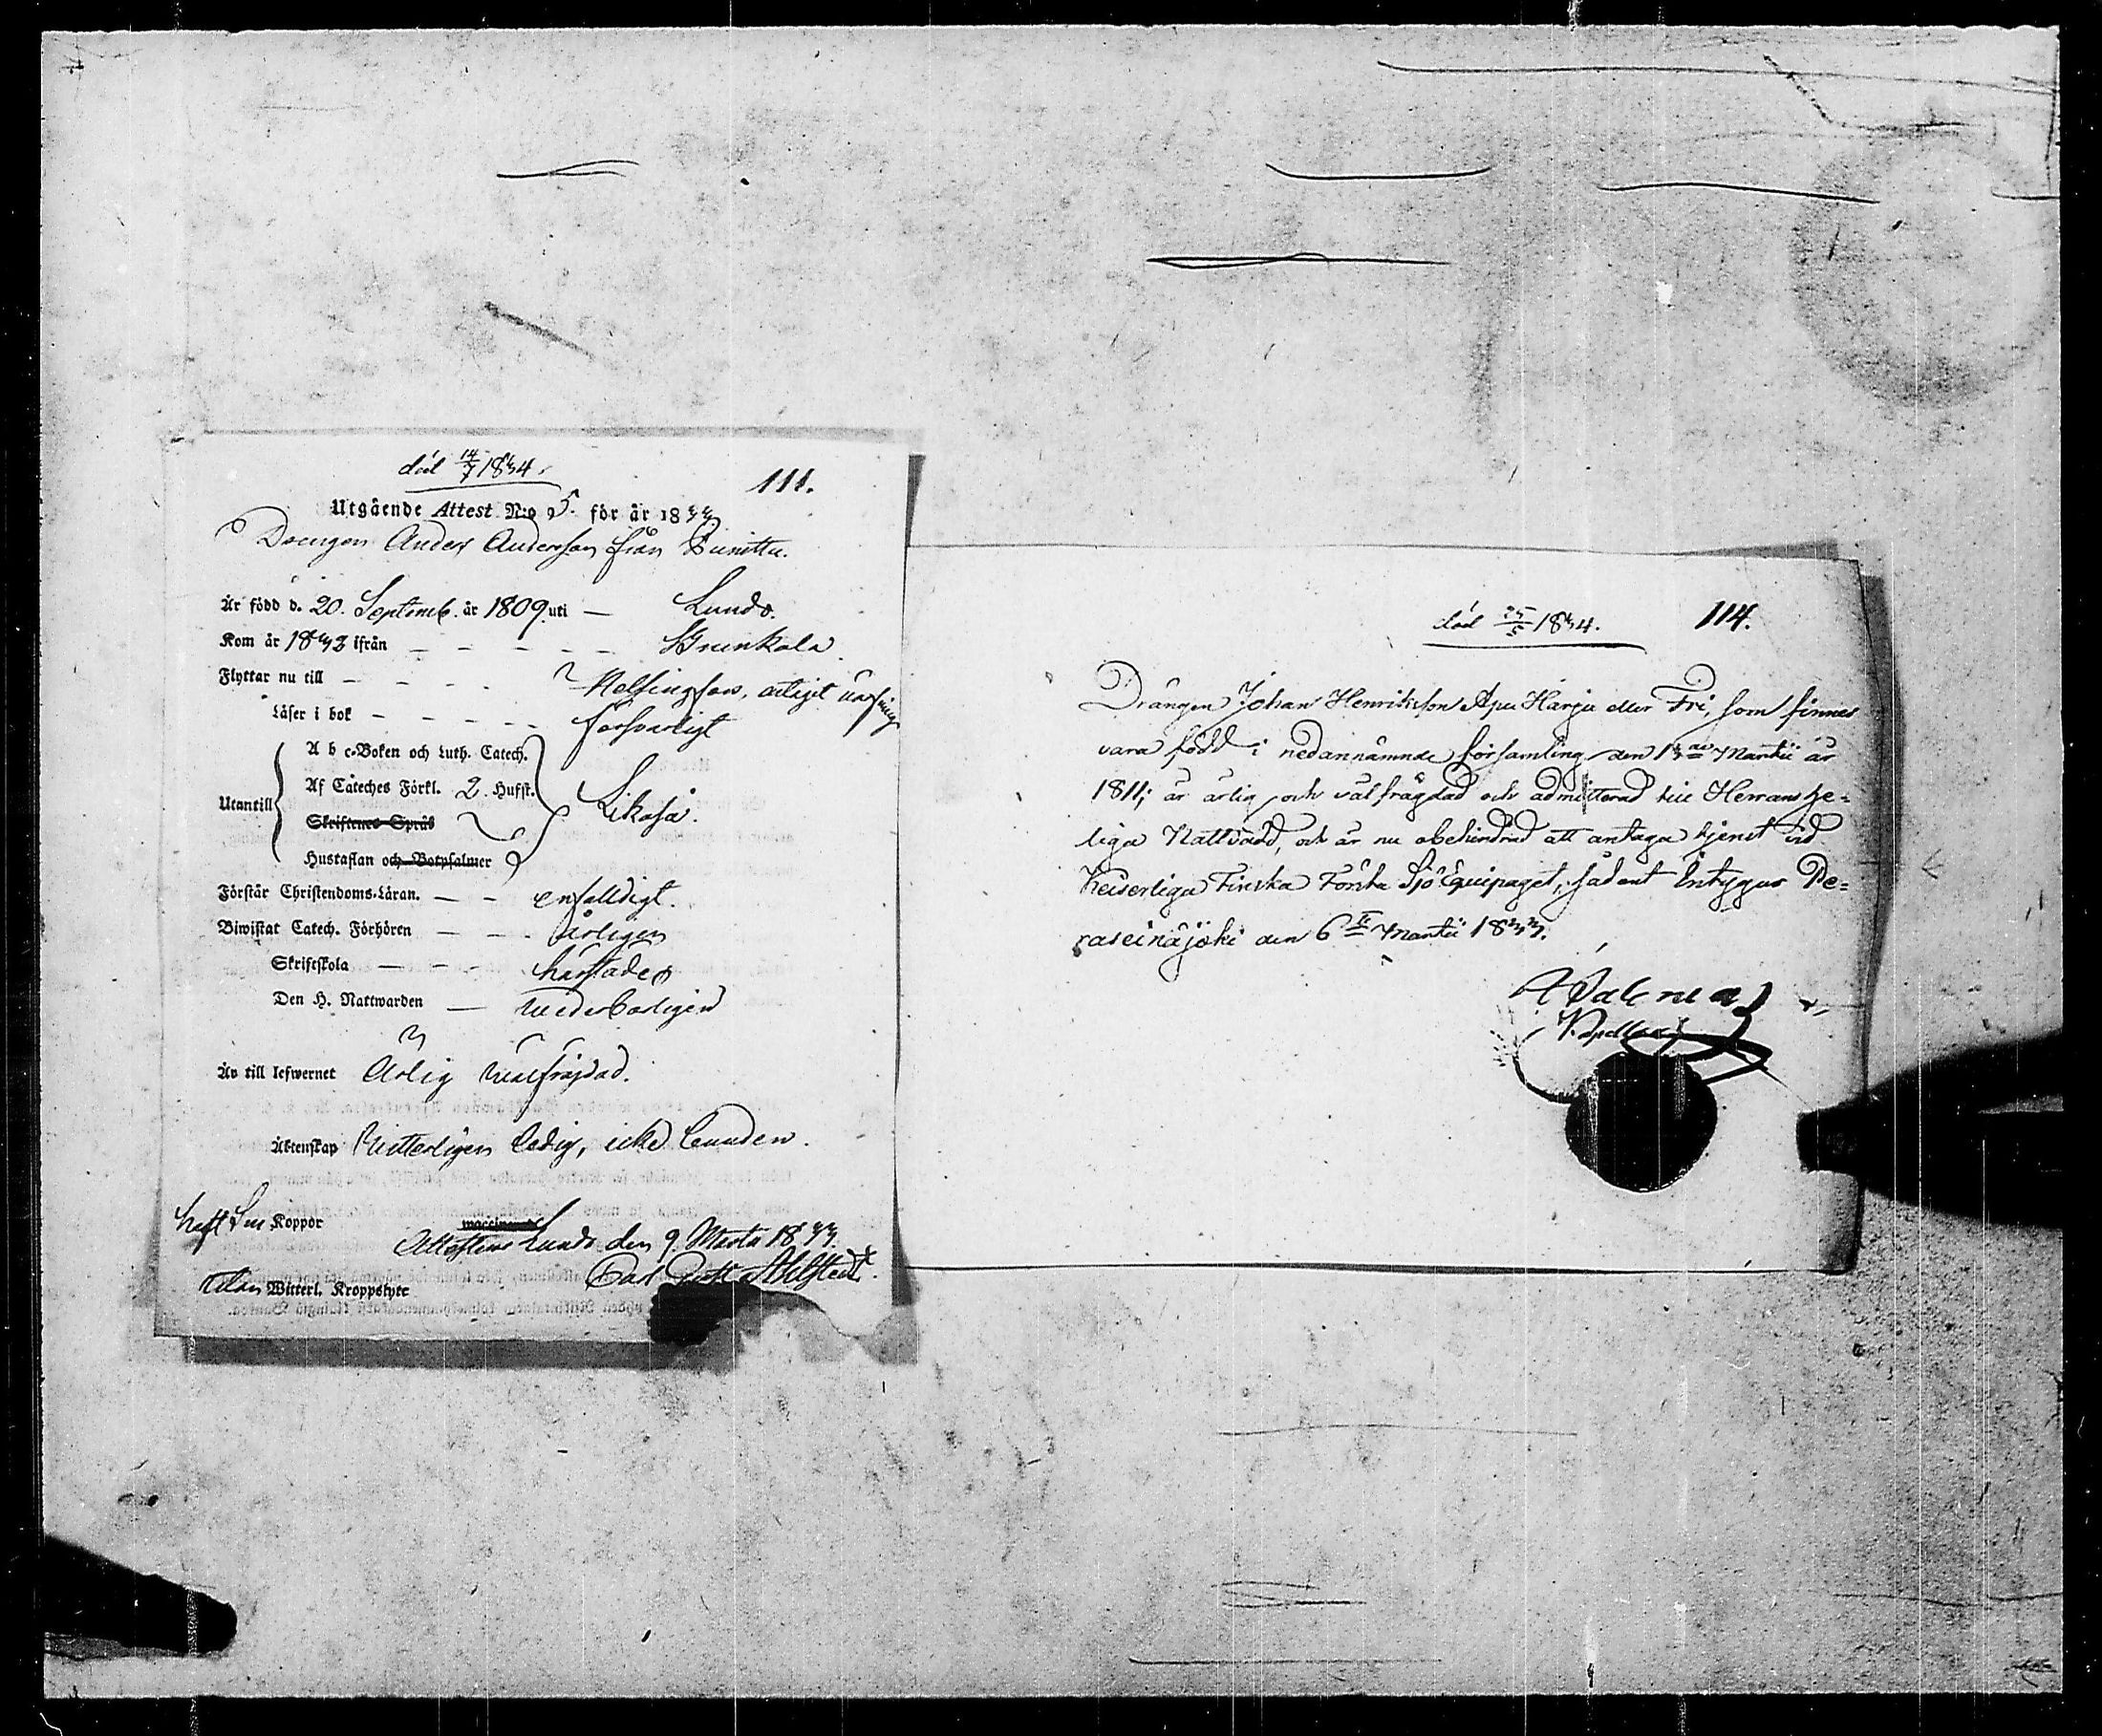 död 14/7 1834.
111.
Utgående Attest N:o 5. för år 1833
Drengen Anders Andersson från Punittu.
Är född d. 20. Septemb. år 1809. uti — Lundo.
Kom år 1832 ifrån — — — — — St Karins
Flyttar nu till — — — — Helsingfors, enligit
Läser i bok — — — — — försvarligt
Utantill
A b c-Boken och Luth. Catech.
Af Cateches Förkl. 2. Hufst.
Likaså.
Skriftenes Språk
Hustaflan och Botpsalmer
Förstår Christendoms-Läran. — — enfalldigt.
Biwistat Catech. Förhören — — årligen
Skriftskola — — —
Den H. Nattwarden —
Är till lefwernet Ärlig
Äktenskap Witterligen ledig, icke bunden.
haft Koppor
waccinerad
Attesteras Lundo den 9. Martii 1833.
Carl Ahlstedt.
utan Witterl. Kroppslyte
död 25/5 1834.
114.
Drängen Johan Henriksson Apu Harju eller Fri, som finnes
vara född i nedannämnde församling den 13de Martii år
1811; är ärlig och välfrägdad och admitterad till Herrans he=
liga Nattvard, och är nu obehindrad att antaga tjenst vid
Keiserliga Finska Första Sjö Equipaget, sådant intygar Pe=
raseinäjoki den 6te Martii 1833.